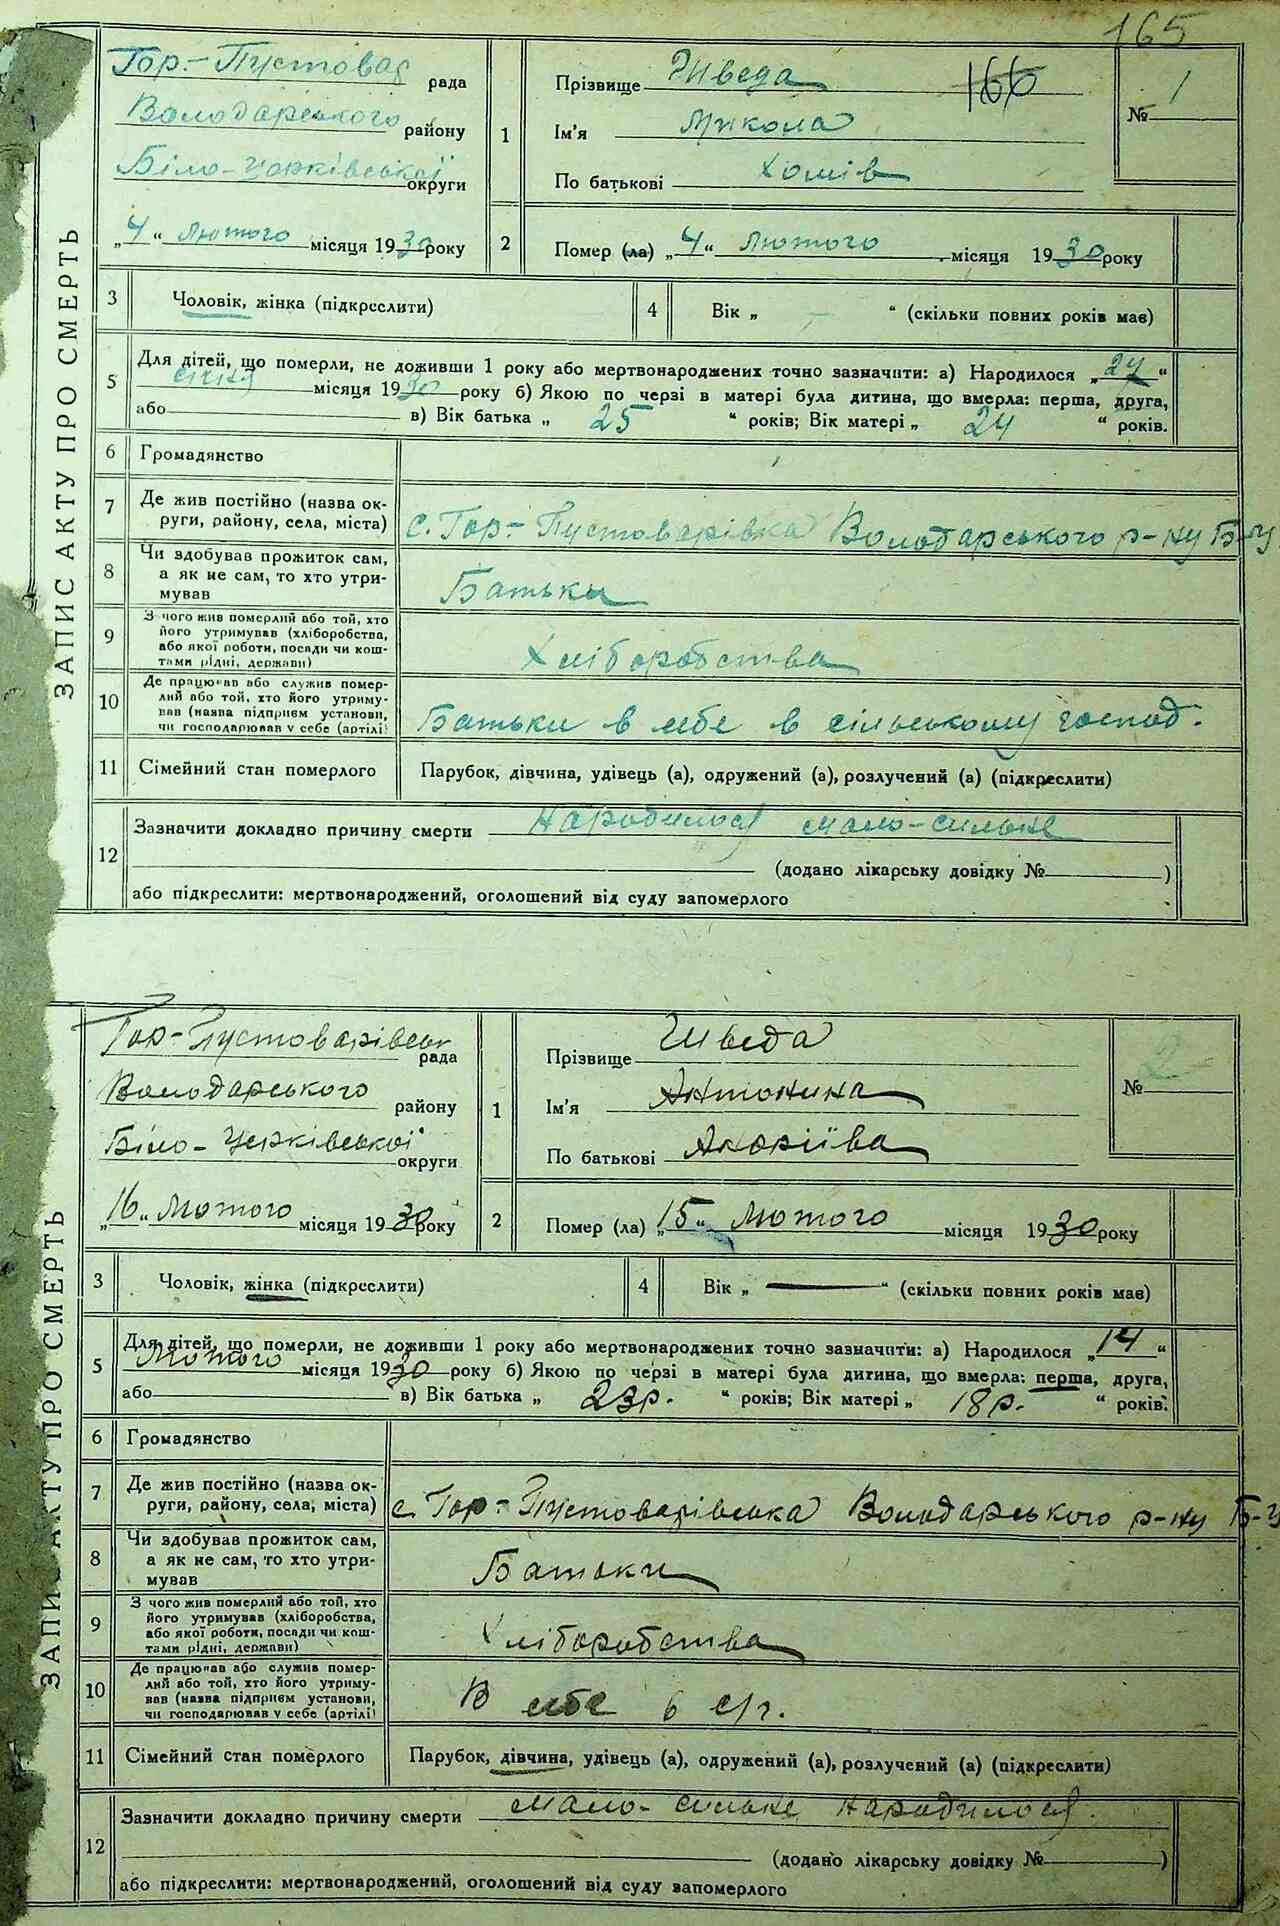 165
ЗАПИС АКТУ ПРО СМЕРТЬ
Гор.-Пустовар рада
Володарського району
Біло-Церківської округи
„4“ Лютого місяця 1930 року
1
Прізвище Шведа
166
Ім'я Микола
По батькові Хомів
№ 1
2
Помер (ла) „4“ Лютого місяця 1930 року
3 Чоловік, жінка (підкреслити)
4 Вік „ — “ (скільки повних років має)
5 Для дітей, що померли, не доживши 1 року або мертвонароджених точно зазначити: а) Народилося „24“
січня місяця 1930 року б) Якою по черзі в матері була дитина, що вмерла: перша, друга,
або в) Вік батька „ 25 “ років; Вік матері „ 24 “ років.
6 Громадянство
7 Де жив постійно (назва округи, району, села, міста) с. Гор.-Пустоварівка Володарського р-ну Б-Ц
8 Чи здобував прожиток сам, а як не сам, то хто утримував Батьки
9 З чого жив померлий або той, хто його утримував (хліборобства, або якої роботи, посади чи коштами рідні, держави) Хліборобства
10 Де працював або служив померлий або той, хто його утримував (назва підприєм установи, чи господарював у себе (артілі) Батьки в себе в сільському господ.
11 Сімейний стан померлого Парубок, дівчина, удівець (а), одружений (а), розлучений (а) (підкреслити)
12 Зазначити докладно причину смерти Народилося мало-сильне
(додано лікарську довідку № )
або підкреслити: мертвонароджений, оголошений від суду запомерлого
ЗАПИС АКТУ ПРО СМЕРТЬ
Гор-Пустоварівськ рада
Володарського району
Біло-Церківської округи
„16“ Лютого місяця 1930 року
1
Прізвище Шведа
Ім'я Антонина
По батькові Андріїва
№ 2
2
Помер (ла) „15“ Лютого місяця 1930 року
3 Чоловік, жінка (підкреслити)
4 Вік „ — “ (скільки повних років має)
5 Для дітей, що померли, не доживши 1 року або мертвонароджених точно зазначити: а) Народилося „14“
Лютого місяця 1930 року б) Якою по черзі в матері була дитина, що вмерла: перша, друга,
або в) Вік батька „ 23р. “ років; Вік матері „ 18р. “ років.
6 Громадянство
7 Де жив постійно (назва округи, району, села, міста) с. Гор-Пустоварівська Володарського р-ну Б-Ц
8 Чи здобував прожиток сам, а як не сам, то хто утримував Батьки
9 З чого жив померлий або той, хто його утримував (хліборобства, або якої роботи, посади чи коштами рідні, держави) Хліборобства
10 Де працював або служив померлий або той, хто його утримував (назва підприєм установи, чи господарював у себе (артілі) В себе в с/г.
11 Сімейний стан померлого Парубок, дівчина, удівець (а), одружений (а), розлучений (а) (підкреслити)
12 Зазначити докладно причину смерти Мало-сильне народилося.
(додано лікарську довідку № )
або підкреслити: мертвонароджений, оголошений від суду запомерлого